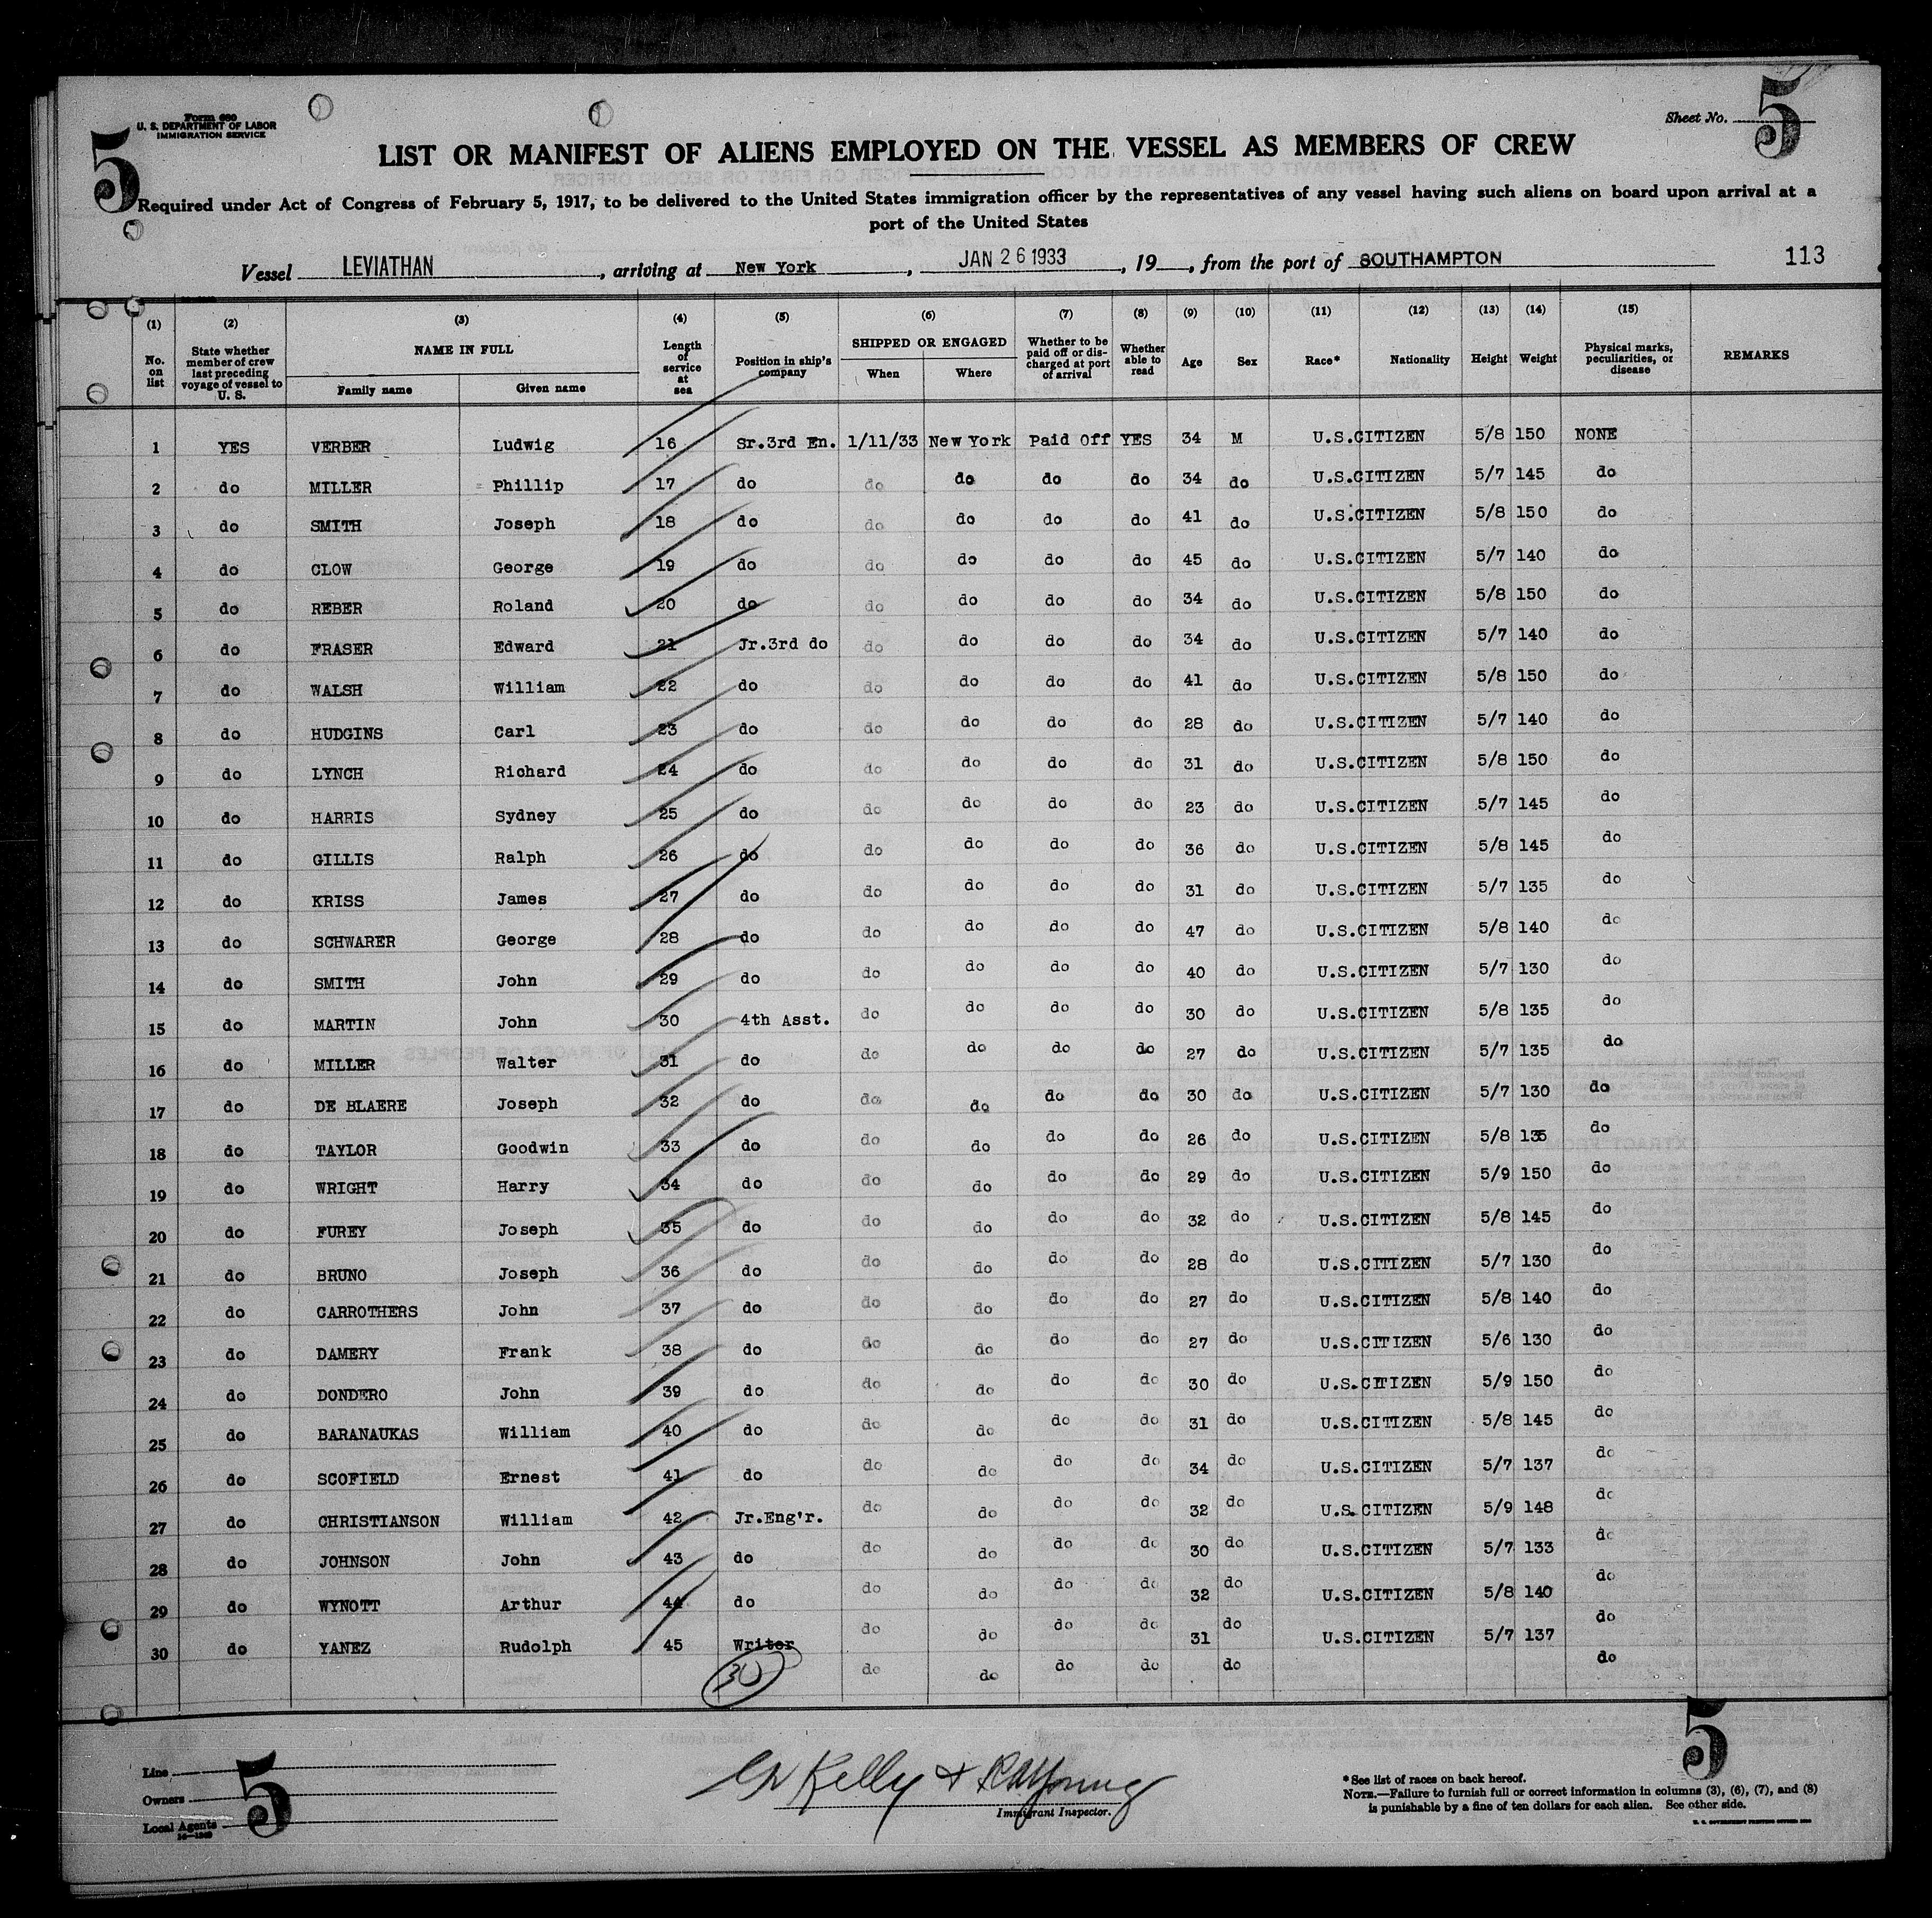 5
Form 680
U. S. DEPARTMENT OF LABOR
IMMIGRATION SERVICE
Sheet No. 5
LIST OR MANIFEST OF ALIENS EMPLOYED ON THE VESSEL AS MEMBERS OF CREW
Required under Act of Congress of February 5, 1917, to be delivered to the United States immigration officer by the representatives of any vessel having such aliens on board upon arrival at a
port of the United States
Vessel LEVIATHAN, arriving at New York, JAN 26 1933, 19, from the port of SOUTHAMPTON 113
(1) (2) (3) (4) (5) (6) (7) (8) (9) (10) (11) (12) (13) (14) (15)
No. on list State whether member of crew last preceding voyage of vessel to U. S. NAME IN FULL Family name Given name Length of service at sea Position in ship's company SHIPPED OR ENGAGED When Where Whether to be paid off or discharged at port of arrival Whether able to read Age Sex Race* Nationality Height Weight Physical marks, peculiarities, or disease REMARKS
1 YES VERBER Ludwig 16 Sr.3rd En. 1/11/33 New York Paid Off YES 34 M U.S.CITIZEN 5/8 150 NONE
2 do MILLER Phillip 17 do do do do do 34 do U.S.CITIZEN 5/7 145 do
3 do SMITH Joseph 18 do do do do do 41 do U.S.CITIZEN 5/8 150 do
4 do CLOW George 19 do do do do do 45 do U.S.CITIZEN 5/7 140 do
5 do REBER Roland 20 do do do do do 34 do U.S.CITIZEN 5/8 150 do
6 do FRASER Edward 21 Jr.3rd do do do do do 34 do U.S.CITIZEN 5/7 140 do
7 do WALSH William 22 do do do do do 41 do U.S.CITIZEN 5/8 150 do
8 do HUDGINS Carl 23 do do do do do 28 do U.S.CITIZEN 5/7 140 do
9 do LYNCH Richard 24 do do do do do 31 do U.S.CITIZEN 5/8 150 do
10 do HARRIS Sydney 25 do do do do do 23 do U.S.CITIZEN 5/7 145 do
11 do GILLIS Ralph 26 do do do do do 36 do U.S.CITIZEN 5/8 145 do
12 do KRISS James 27 do do do do do 31 do U.S.CITIZEN 5/7 135 do
13 do SCHWARER George 28 do do do do do 47 do U.S.CITIZEN 5/8 140 do
14 do SMITH John 29 do do do do do 40 do U.S.CITIZEN 5/7 130 do
15 do MARTIN John 30 4th Asst. do do do do 30 do U.S.CITIZEN 5/8 135 do
16 do MILLER Walter 31 do do do do do 27 do U.S.CITIZEN 5/7 135 do
17 do DE BLAERE Joseph 32 do do do do do 30 do U.S.CITIZEN 5/7 130 do
18 do TAYLOR Goodwin 33 do do do do do 26 do U.S.CITIZEN 5/8 135 do
19 do WRIGHT Harry 34 do do do do do 29 do U.S.CITIZEN 5/9 150 do
20 do FUREY Joseph 35 do do do do do 32 do U.S.CITIZEN 5/8 145 do
21 do BRUNO Joseph 36 do do do do do 28 do U.S.CITIZEN 5/7 130 do
22 do CARROTHERS John 37 do do do do do 27 do U.S.CITIZEN 5/8 140 do
23 do DAMERY Frank 38 do do do do do 27 do U.S.CITIZEN 5/6 130 do
24 do DONDERO John 39 do do do do do 30 do U.S.CITIZEN 5/9 150 do
25 do BARANAUKAS William 40 do do do do do 31 do U.S.CITIZEN 5/8 145 do
26 do SCOFIELD Ernest 41 do do do do do 34 do U.S.CITIZEN 5/7 137 do
27 do CHRISTIANSON William 42 Jr.Eng'r. do do do do 32 do U.S. CITIZEN 5/9 148 do
28 do JOHNSON John 43 do do do do do 30 do U.S.CITIZEN 5/7 133 do
29 do WYNOTT Arthur 44 do do do do do 32 do U.S.CITIZEN 5/8 140 do
30 do YANEZ Rudolph 45 Writer do do do do 31 do U.S.CITIZEN 5/7 137 do
30 do do do do do do
Line
Owners
Local Agents
5
Kelly + RA Young
Immigrant Inspector.
5
*See list of races on back hereof.
NOTE.—Failure to furnish full or correct information in columns (3), (6), (7), and (8)
is punishable by a fine of ten dollars for each alien. See other side.